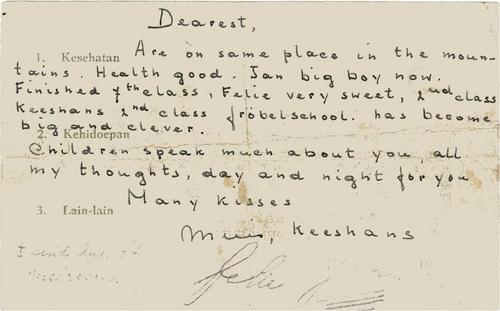 Dearest,
1. Kesehatan Are on same place in the moun-
tains. Health good. Jan big boy now.
Finished 7th class, Felie very sweet, 2nd class
Keeshans 2nd class fröbelschool. has become
big and clever.
2. Kehidoepan
Children speak much about you, all
my thoughts, day and night for you
Many kisses
3. Lain-lain
Keeshans
Felie